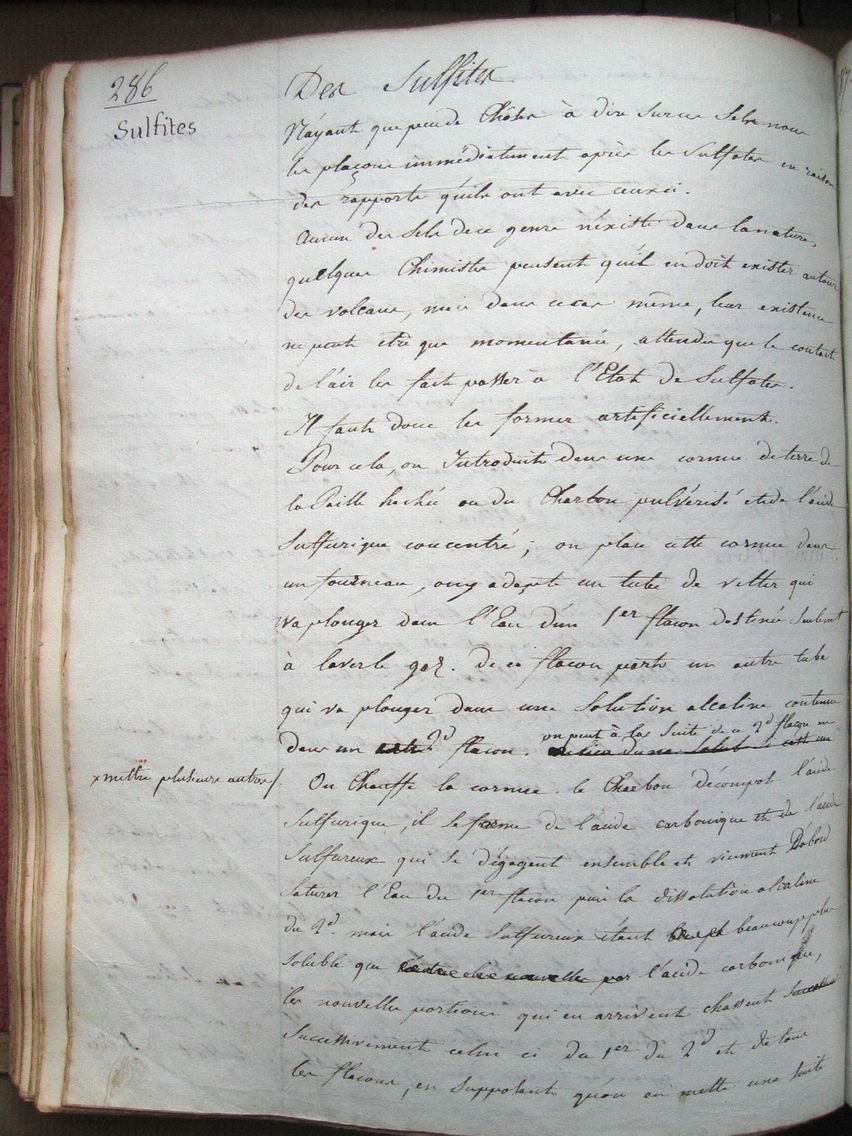 286
Sulfites
Des Sulfites
N'ayant que peu de Chôses à dire sur ces Sels nous
les plaçons immédiatement après les Sulfates en raison
des rapports qu'ils ont avec ceux ci.
Aucun des Sels de ce genre n'existe dans la nature,
quelques Chimistes pensent qu'il en doit exister autour
des volcans, mais dans ce cas même, leur existence
ne peut être que momentanée, attendu que le contact
de l'air les fait passer à l'Etat de Sulfates.
Il faut donc les former artificiellement.
Pour cela, on Introduit dans une cornue de terre de
la Paille hachée ou du Charbon pulvérisé et de l'acide
Sulfurique concentré; on place cette cornue dans
un fourneau, on y adapte un tube de Velter qui
va plonger dans l'Eau d'un 1er flacon destiné Seulement
à laver le gaz. de ce flacon part un autre tube
qui va plonger dans une Solution alcaline contenue
dans un 2d flacon. on peut à la Suite de ce 2d flacon en
x mettre plusieurs autres/.
On Chauffe la cornue. le Charbon décompose l'acide
Sulfurique, il se forme de l'acide carbonique et de l'acide
Sulfureux qui se dégagent ensemble et viennent D'abord
Saturer l'Eau du 1er flacon puis la dissolution alcaline
du 2d. mais l'acide Sulfureux étant beaucoup plus
Soluble que l'acide carbonique,
les nouvelles portions qui en arrivent chassent
Successivement celui ci du 1er du 2d et de tous
les flacons, en Supposant qu'on en mette une Suite